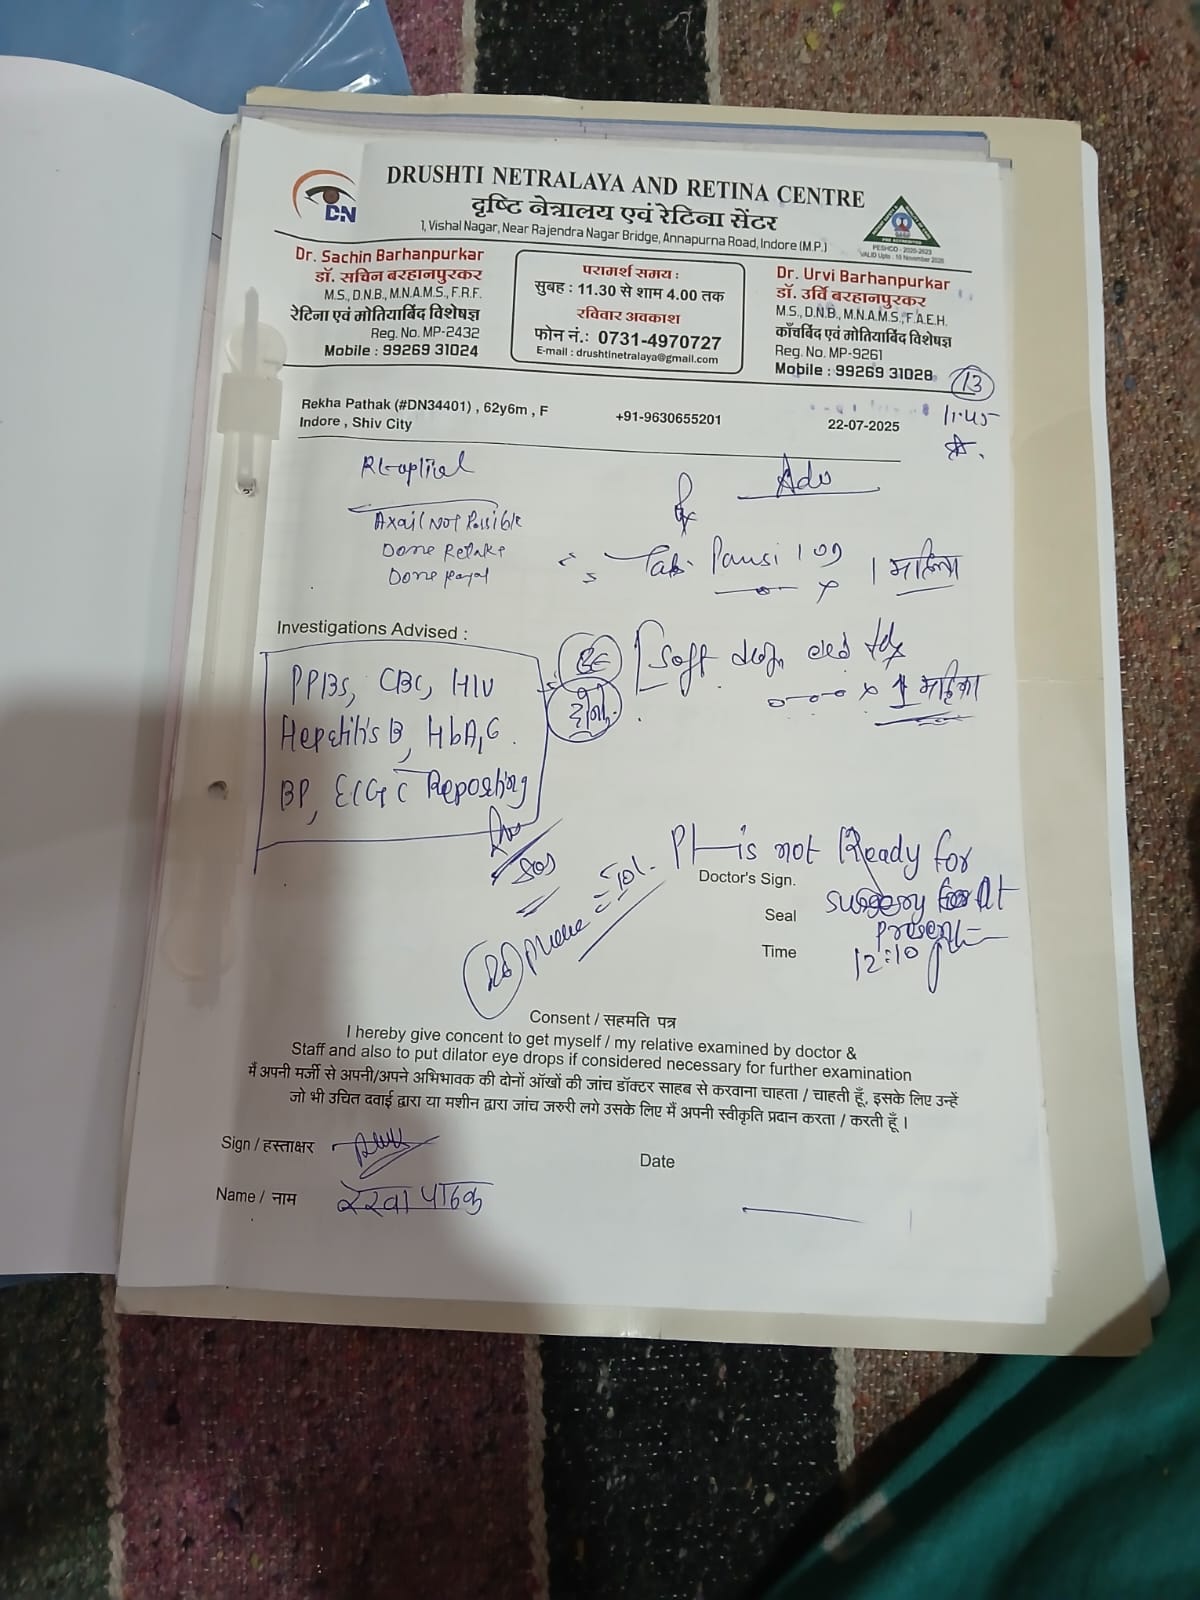 DRUSHTI NETRALAYA AND RETINA CENTRE
दृष्टि नेत्रालय एवं रेटिना सेंटर
1, Vishal Nagar, Near Rajendra Nagar Bridge, Annapurna Road, Indore (M.P.)
DN
PESHCO - 2020-2023
VALID Upto : 10 November 2025
Dr. Sachin Barhanpurkar
डॉ. सचिन बरहानपुरकर
M.S., D.N.B., M.N.A.M.S., F.R.F.
रेटिना एवं मोतियाबिंद विशेषज्ञ
Reg. No. MP-2432
Mobile : 99269 31024
परामर्श समय :
सुबह : 11.30 से शाम 4.00 तक
रविवार अवकाश
फोन नं.: 0731-4970727
E-mail : drushtinetralaya@gmail.com
Dr. Urvi Barhanpurkar
डॉ. उर्वि बरहानपुरकर
M.S., D.N.B., M.N.A.M.S., F.A.E.H.
काँचबिंद एवं मोतियाबिंद विशेषज्ञ
Reg. No. MP-9261
Mobile : 99269 31028
13
11:45
Rekha Pathak (#DN34401) , 62y6m , F
Indore , Shiv City
+91-9630655201
22-07-2025
Adv
Axail Not Possible
Done
Done
Tab.
Investigations Advised :
PPBS, CBC, HIV
Hepatitis B, HbA1C
BP, ECG C Reporting
BE
दोनों
Soft
Pt is not Ready for
surgery at
present
12:10
Doctor's Sign.
Seal
Time
Consent / सहमति पत्र
I hereby give concent to get myself / my relative examined by doctor &
Staff and also to put dilator eye drops if considered necessary for further examination
मैं अपनी मर्जी से अपनी/अपने अभिभावक की दोनों आँखों की जांच डॉक्टर साहब से करवाना चाहता / चाहती हूँ, इसके लिए उन्हें
जो भी उचित दवाई द्वारा या मशीन द्वारा जांच जरुरी लगे उसके लिए मैं अपनी स्वीकृति प्रदान करता / करती हूँ ।
Sign / हस्ताक्षर
Date
Name / नाम रेखा पाठक